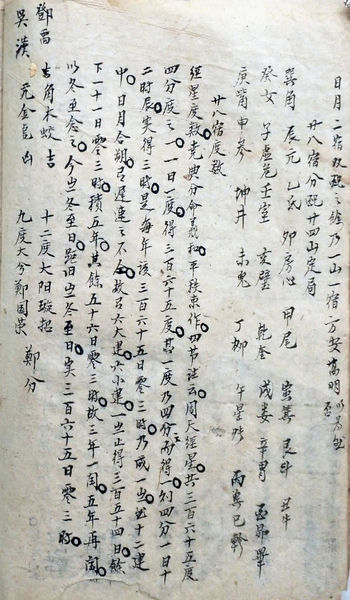 日月二宿收配之餘乃一山一宿一方安萬明
廿八宿分配廿四山定局
巽角 辰亢 乙氐 卯房心 甲尾 寅箕 艮斗 丑牛
癸女 子虛危 壬室 亥壁 乾奎 戌婁 辛胃 酉昴畢
庚觜 申參 坤井 未鬼 丁柳 午星張 丙翼 巳軫
廿八宿度數
經星度數堯典分命羲和平秩東作四節注云周天經星共三百六十五度
四分度之一一日一度得三百六十五度其一度乃四分而得一
二時辰實得三時是每年該三百六十五日零三時乃成一歲十二建
中日月合朔有遲速之不同故有六大建六小建一歲止得三百五十四日餘
下一十一日零三時積五年其餘五十六日零三時故三年一閏五年再閏
以冬至念之今歲冬至日距旧歲冬至日實三百六十五日零三時
鄧禹 吉角木蛟吉 十二度大陽 鄭分
吳漢 亢金龍凶 九度大兮鄭國榮